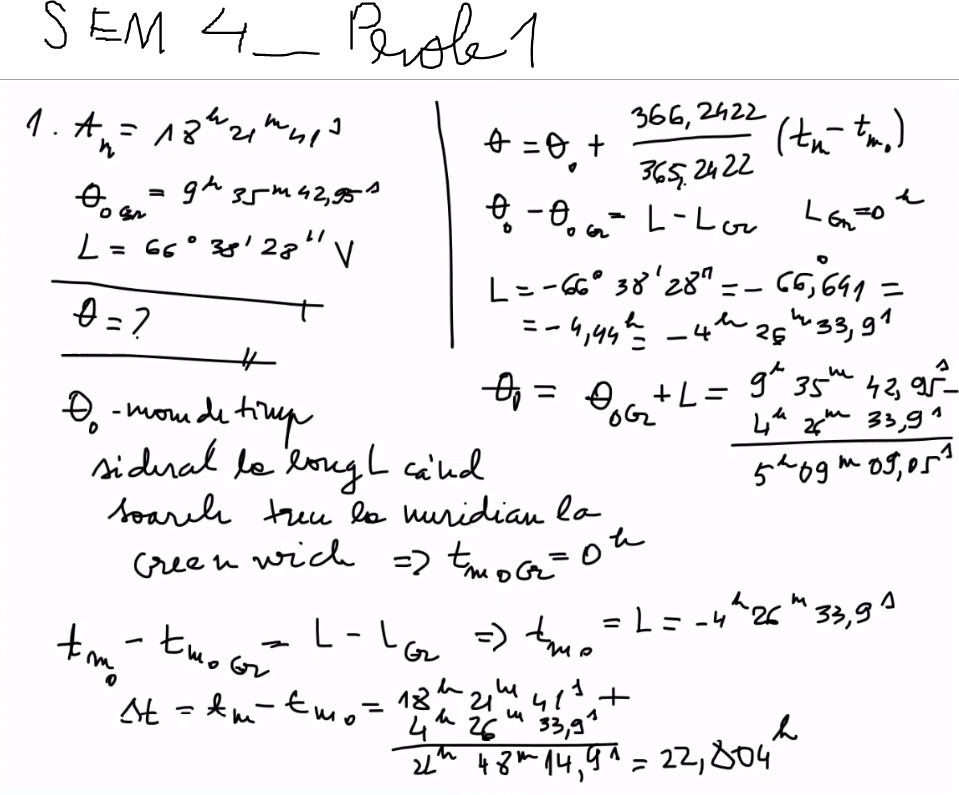 SEM 4_ Perole 1
1. t_m = 18^h 21^m 41^s
θ_0 Gr = 9^h 35^m 42,95^s
L = 66° 38' 28'' V
θ = ?
θ_0 - mom de timp
sideral la long L când
soarele trece la meridian la
Greenwich => t_m0Gr = 0^h
θ = θ_0 + 366,2422 / 365,2422 (t_m - t_m0)
θ_0 - θ_0Gr = L - L_Gr L_Gr = 0^h
L = -66° 38' 28'' = - 66,°641 =
= - 4,44^h = - 4^h 26^m 33,9^s
θ_0 = θ_0Gr + L = 9^h 35^m 42,95^s -
4^h 26^m 33,9^s
5^h 09^m 09,05^s
t_m0 - t_m0Gr = L - L_Gr => t_m0 = L = -4^h 26^m 33,9^s
Δt = t_m - t_m0 = 18^h 21^m 41^s +
4^h 26^m 33,9^s
22^h 48^m 14,9^s = 22,804^h